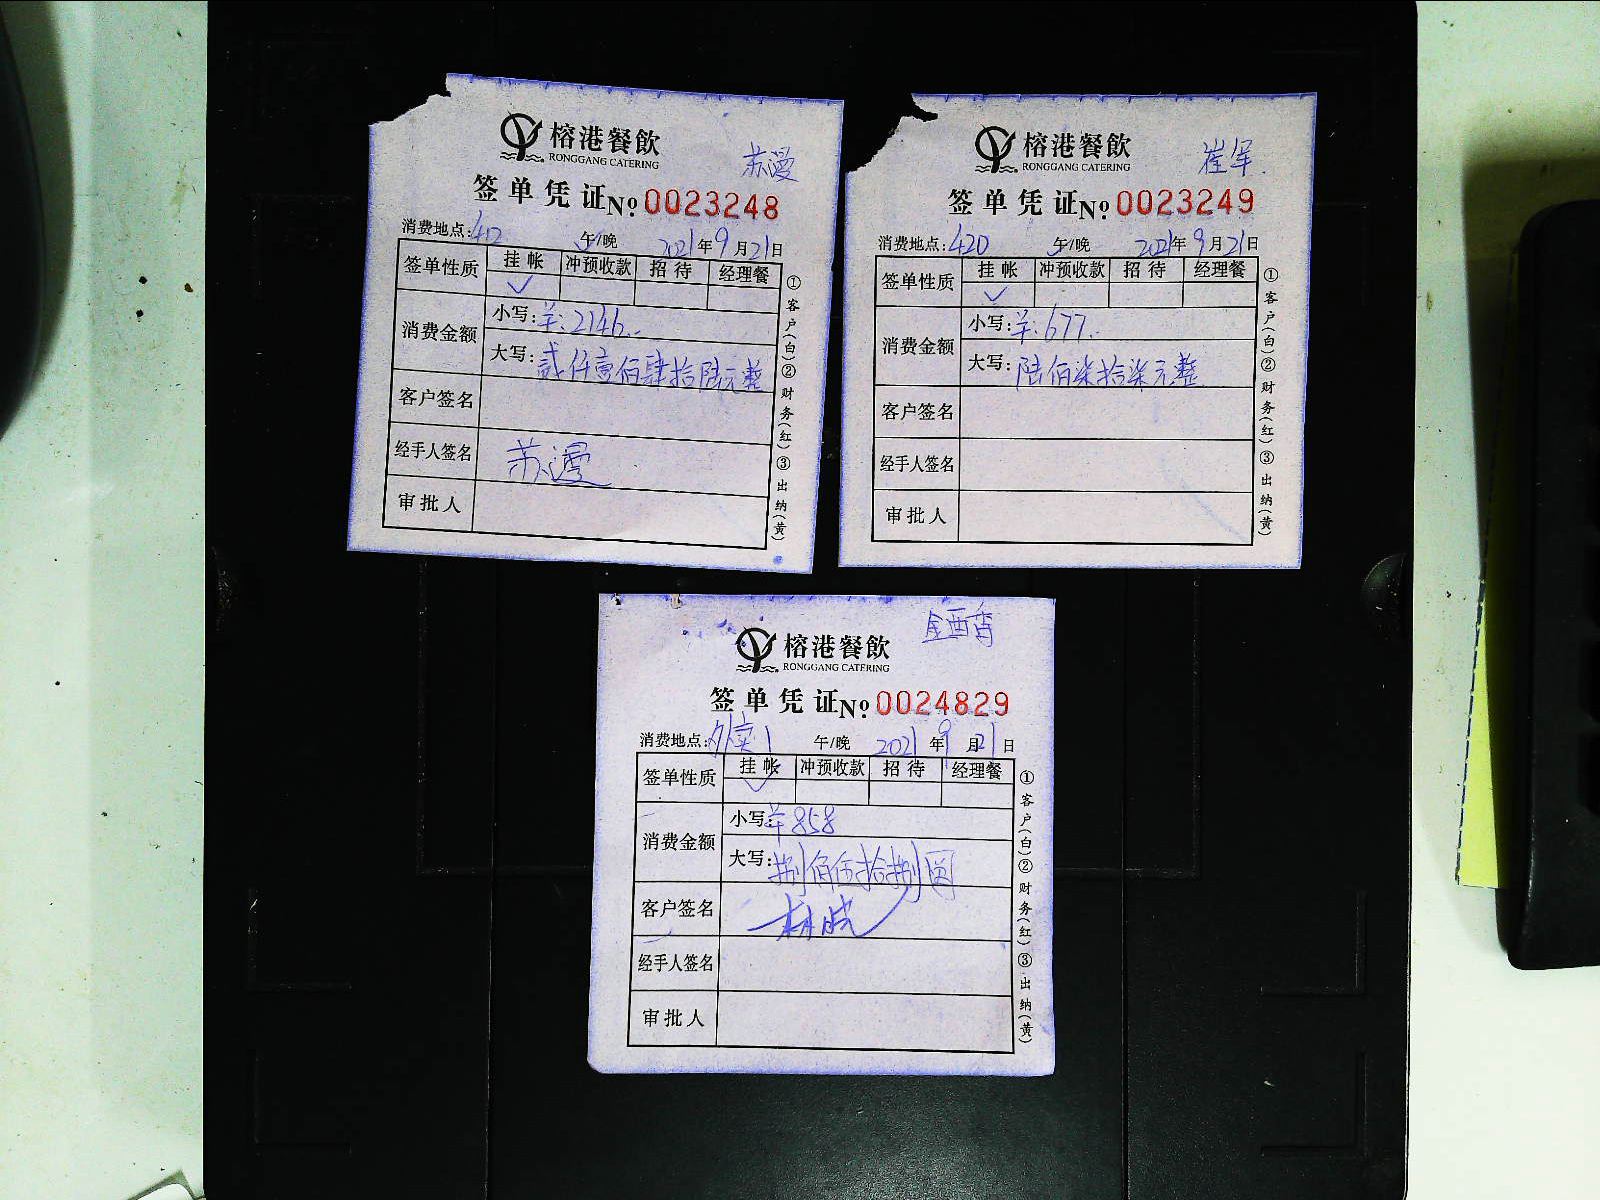 榕港餐飲
RONGGANG CATERING
苏漫
签单凭证№0023248
消费地点:412 午/晚 2021年9月21日
签单性质 挂帐 冲预收款 招待 经理餐
✓
消费金额
小写:羊:2146..
大写:贰仟壹佰肆拾陆元整
客户签名
经手人签名 苏漫
审批人
①客户(白)②财务(红)③出纳(黄)
榕港餐飲
RONGGANG CATERING
崔军.
签单凭证№0023249
消费地点:420 午/晚 2021年9月21日
签单性质 挂帐 冲预收款 招待 经理餐
✓
消费金额
小写:羊:677..
大写:陆佰柒拾柒元整
客户签名
经手人签名
审批人
①客户(白)②财务(红)③出纳(黄)
榕港餐飲
RONGGANG CATERING
签单凭证№0024829
消费地点:外卖1 午/晚 2021年9月21日
签单性质 挂帐 冲预收款 招待 经理餐
✓
消费金额
小写:羊858
大写:捌佰伍拾捌圆
客户签名
经手人签名
审批人
①客户(白)②财务(红)③出纳(黄)